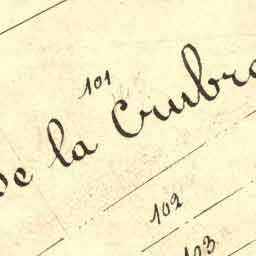 101
de la Crubra
102
103